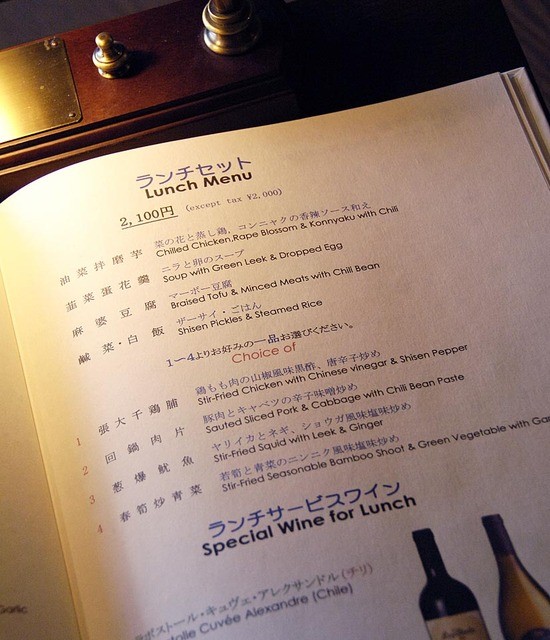 ランチセット
Lunch Menu
2,100円 (except tax ¥2,000)
油菜拌磨芋 菜の花と蒸し鶏，コンニャクの香辣ソース和え
Chilled Chicken,Rape Blossom & Konnyaku with Chili
韮菜蛋花羹 ニラと卵のスープ
Soup with Green Leek & Dropped Egg
麻婆豆腐 マーボー豆腐
Braised Tofu & Minced Meats with Chili Bean
鹹菜・白飯 ザーサイ・ごはん
Shisen Pickles & Steamed Rice
1～4よりお好みの一品お選びください。
Choice of
1 張大千鶏脯 鶏もも肉の山椒風味黒酢、唐辛子炒め
Stir-Fried Chicken with Chinese vinegar & Shisen Pepper
2 回鍋肉片 豚肉とキャベツの辛子味噌炒め
Sauted Sliced Pork & Cabbage with Chili Bean Paste
3 葱爆魷魚 ヤリイカとネギ、ショウガ風味塩味炒め
Stir-Fried Squid with Leek & Ginger
4 春筍炒青菜 若筍と青菜のニンニク風味塩味炒め
Stir-Fried Seasonable Bamboo Shoot & Green Vegetable with Gar
ランチサービスワイン
Special Wine for Lunch
ラポストール・キュヴェ・アレクサンドル(チリ)
Cuvée Alexandre (Chile)